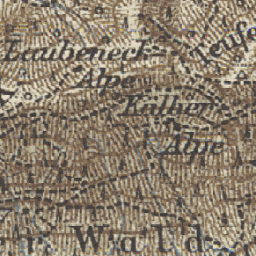 Laubeneck
Alpe
Teufe
Kälber
Alpe
er Wald